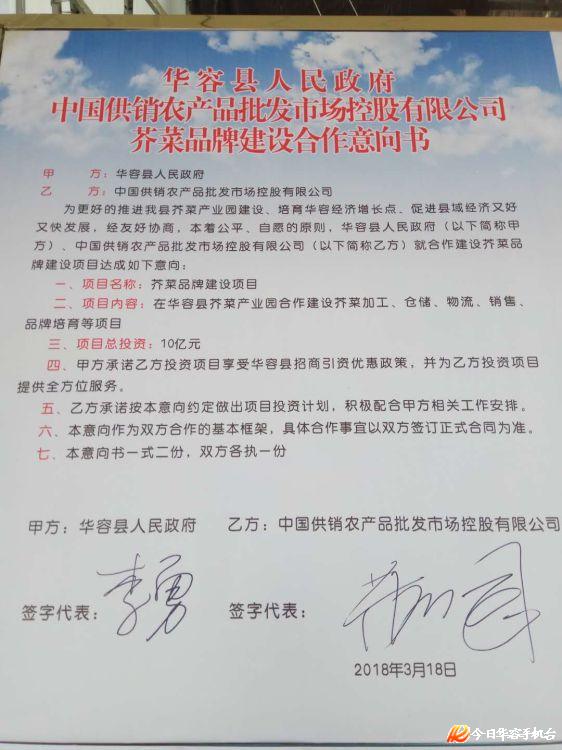 华容县人民政府
中国供销农产品批发市场控股有限公司
芥菜品牌建设合作意向书
甲 方：华容县人民政府
乙 方：中国供销农产品批发市场控股有限公司
为更好的推进我县芥菜产业园建设、培育华容经济增长点、促进县域经济又好
又快发展，经友好协商，本着公平、自愿的原则，华容县人民政府（以下简称甲
方）、中国供销农产品批发市场控股有限公司（以下简称乙方）就合作建设芥菜品
牌建设项目达成如下意向：
一、项目名称：芥菜品牌建设项目
二、项目内容：在华容县芥菜产业园合作建设芥菜加工、仓储、物流、销售、
品牌培育等项目
三、项目总投资：10亿元
四、甲方承诺乙方投资项目享受华容县招商引资优惠政策，并为乙方投资项目
提供全方位服务。
五、乙方承诺按本意向约定做出项目投资计划，积极配合甲方相关工作安排。
六、本意向作为双方合作的基本框架，具体合作事宜以双方签订正式合同为准。
七、本意向书一式二份，双方各执一份
甲方：华容县人民政府 乙方：中国供销农产品批发市场控股有限公司
签字代表：李勇 签字代表：
2018年3月18日
今日华容手机台